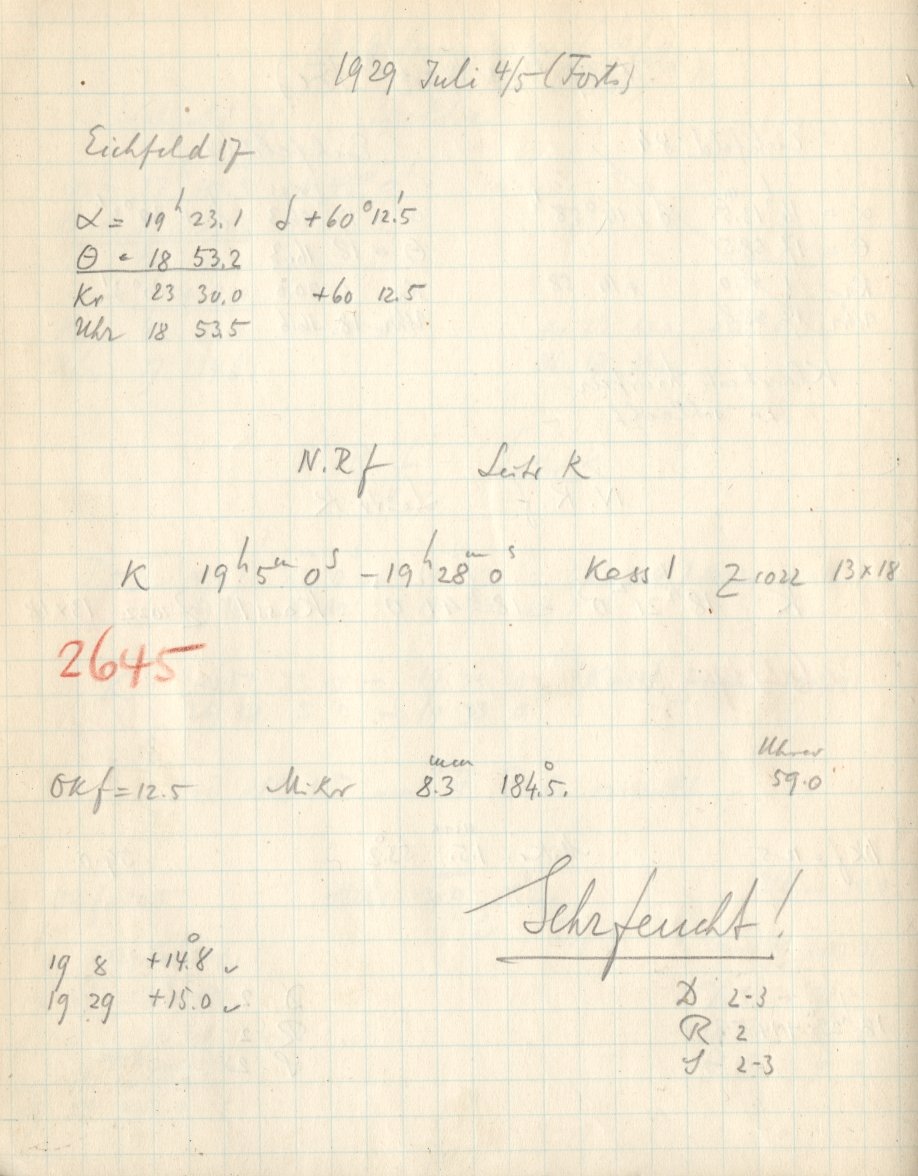 1929 Juli 4/5 (Forts)
Eichfeld 17
α = 19ʰ 23.1 δ +60° 12.'5
Θ = 18 53.2
Kr 23 30.0 +60 12.5
Uhr 18 53.5
N.Rf Seite K
K 19ʰ 5ᵐ 0ˢ – 19ʰ 28ᵐ 0ˢ Kass 1 Z 1022 13×18
2645
OKf = 12.5 Mikr 8.3 mm 184.°5. Uhren 59.0
Sehr feucht!
19 8 +14.°8 ✓
19 29 +15.0 ✓
D 2-3
R 2
S 2-3